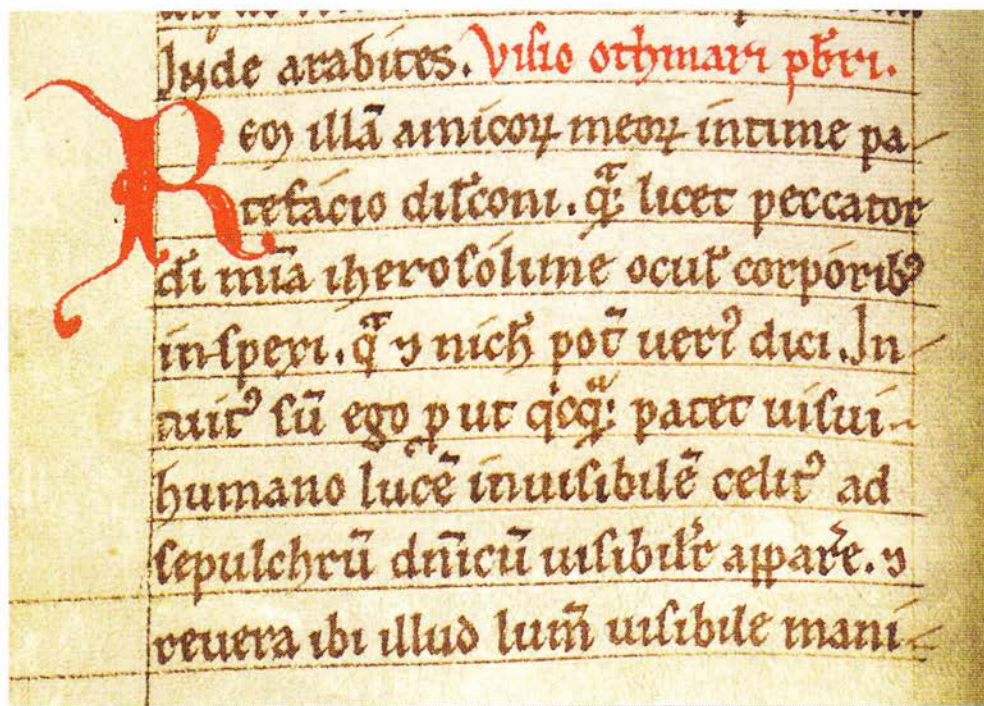 Inde arabites. Visio othmari pb̄ri.
Rem illā amicoꝝ meoꝝ intime pa
tefacio disscom. qͣ: licet peccator
dī mīa iherosolime ocul̄ corporibꝰ
inspexi. qͣ ⁊ nich̄ pot̄ uerꝰ dici. In
tuitꝰ sū ego ꝓut qͥcqͣ: patet uisui
humano lucē inuisibilē celitꝰ ad
sepulchrū dn̄icū uisibilr̄ apparē. ⁊
reuera ibi illud lum̄ uisibile mani